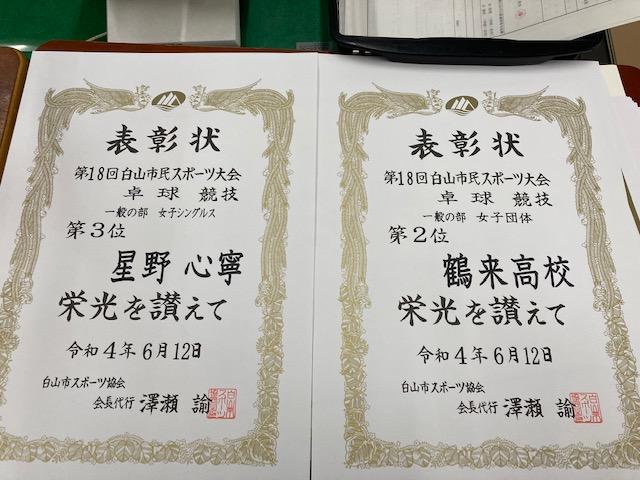 表彰状
第18回白山市民スポーツ大会
卓球競技
一般の部 女子シングルス
第3位
星野 心寧
栄光を讃えて
令和4年6月12日
白山市スポーツ協会
会長代行 澤瀬 諭
表彰状
第18回白山市民スポーツ大会
卓球競技
一般の部 女子団体
第2位
鶴来高校
栄光を讃えて
令和4年6月12日
白山市スポーツ協会
会長代行 澤瀬 諭